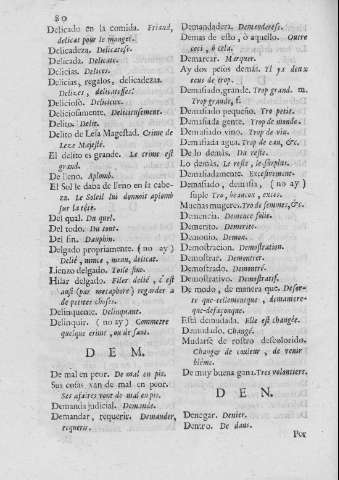 80
Delicado en la comida. Friand,
delicat pour le manger.
Delicadeza. Delicatesse.
Delicada. Delicate.
Delicias. Delices.
Delicias, regalos, delicadezas.
Delices, delicatesses.
Delicioso. Delicieux.
Deliciosamente. Delicieusement.
Delito. Delit.
Delito de Lesa Magestad. Crime de
Leze Majesté.
El delito es grande. Le crime est
grand.
De lleno. Aplomb.
El Sol le daba de lleno en la cabe-
za. Le Soleil lui donnoit aplomb
sur la tête.
Del qual. Du quel.
Del todo. Du tout.
Del fin. Dauphin.
Delgado propriamente. (no ay)
Delié, mince, mean, delicat.
Lienzo delgado. Toile fine.
Hilar delgado. Filer delié, c'est
aussi (par metaphore) regarder à
de petites choses.
Delinquente. Delinquant.
Delinquir. (no ay) Commetre
quelque crime, ou de faute.
DEM.
De mal en peor. De mal en pis.
Sus cosas van de mal en peor.
Ses afaires vont de mal en pis.
Demanda judicial. Demande.
Demandar, requerir. Demander,
requerir.
Demandadera. Demanderese.
Demás de esto, ò aquello. Outre
ceci, ò cela.
Demarcar. Marquer.
Ay dos pesos demás. Il ya deux
ecus de trop.
Demasiado, grande. Trop grand. m.
Trop grande, f.
Demasiado pequeño. Tro petit.
Demasiada gente. Trop de monde.
Demasiado vino. Trop de vin.
Demasiada agua. Trop de eau, &c.
De lo demás. Du reste.
Lo demás. Le reste, le surplus.
Demasiadamente. Excesivement.
Demasiado, demasia, (no ay)
suple Tro, beaucou, exces.
Muchas mugeres. Tro de femmes, &c.
Demencia. Demence folie.
Demerito. Demerite.
Demonio. Demon.
Demonstracion. Demostration.
Demostrar. Demontrer.
Demostrado. Demontré.
Demostrativo. Demostratif.
De modo, de manera que. De sor-
te que-tellemenque, demaniere-
que-defasonque.
Està demudada. Elle est changée.
Demudado. Changé.
Mudarse de rostro descolorido.
Changer de couleur, de venir
blême.
De muy buena gana. Tres volontiers.
DEN.
Denegar. Denier.
Dentro. De dans.
Por